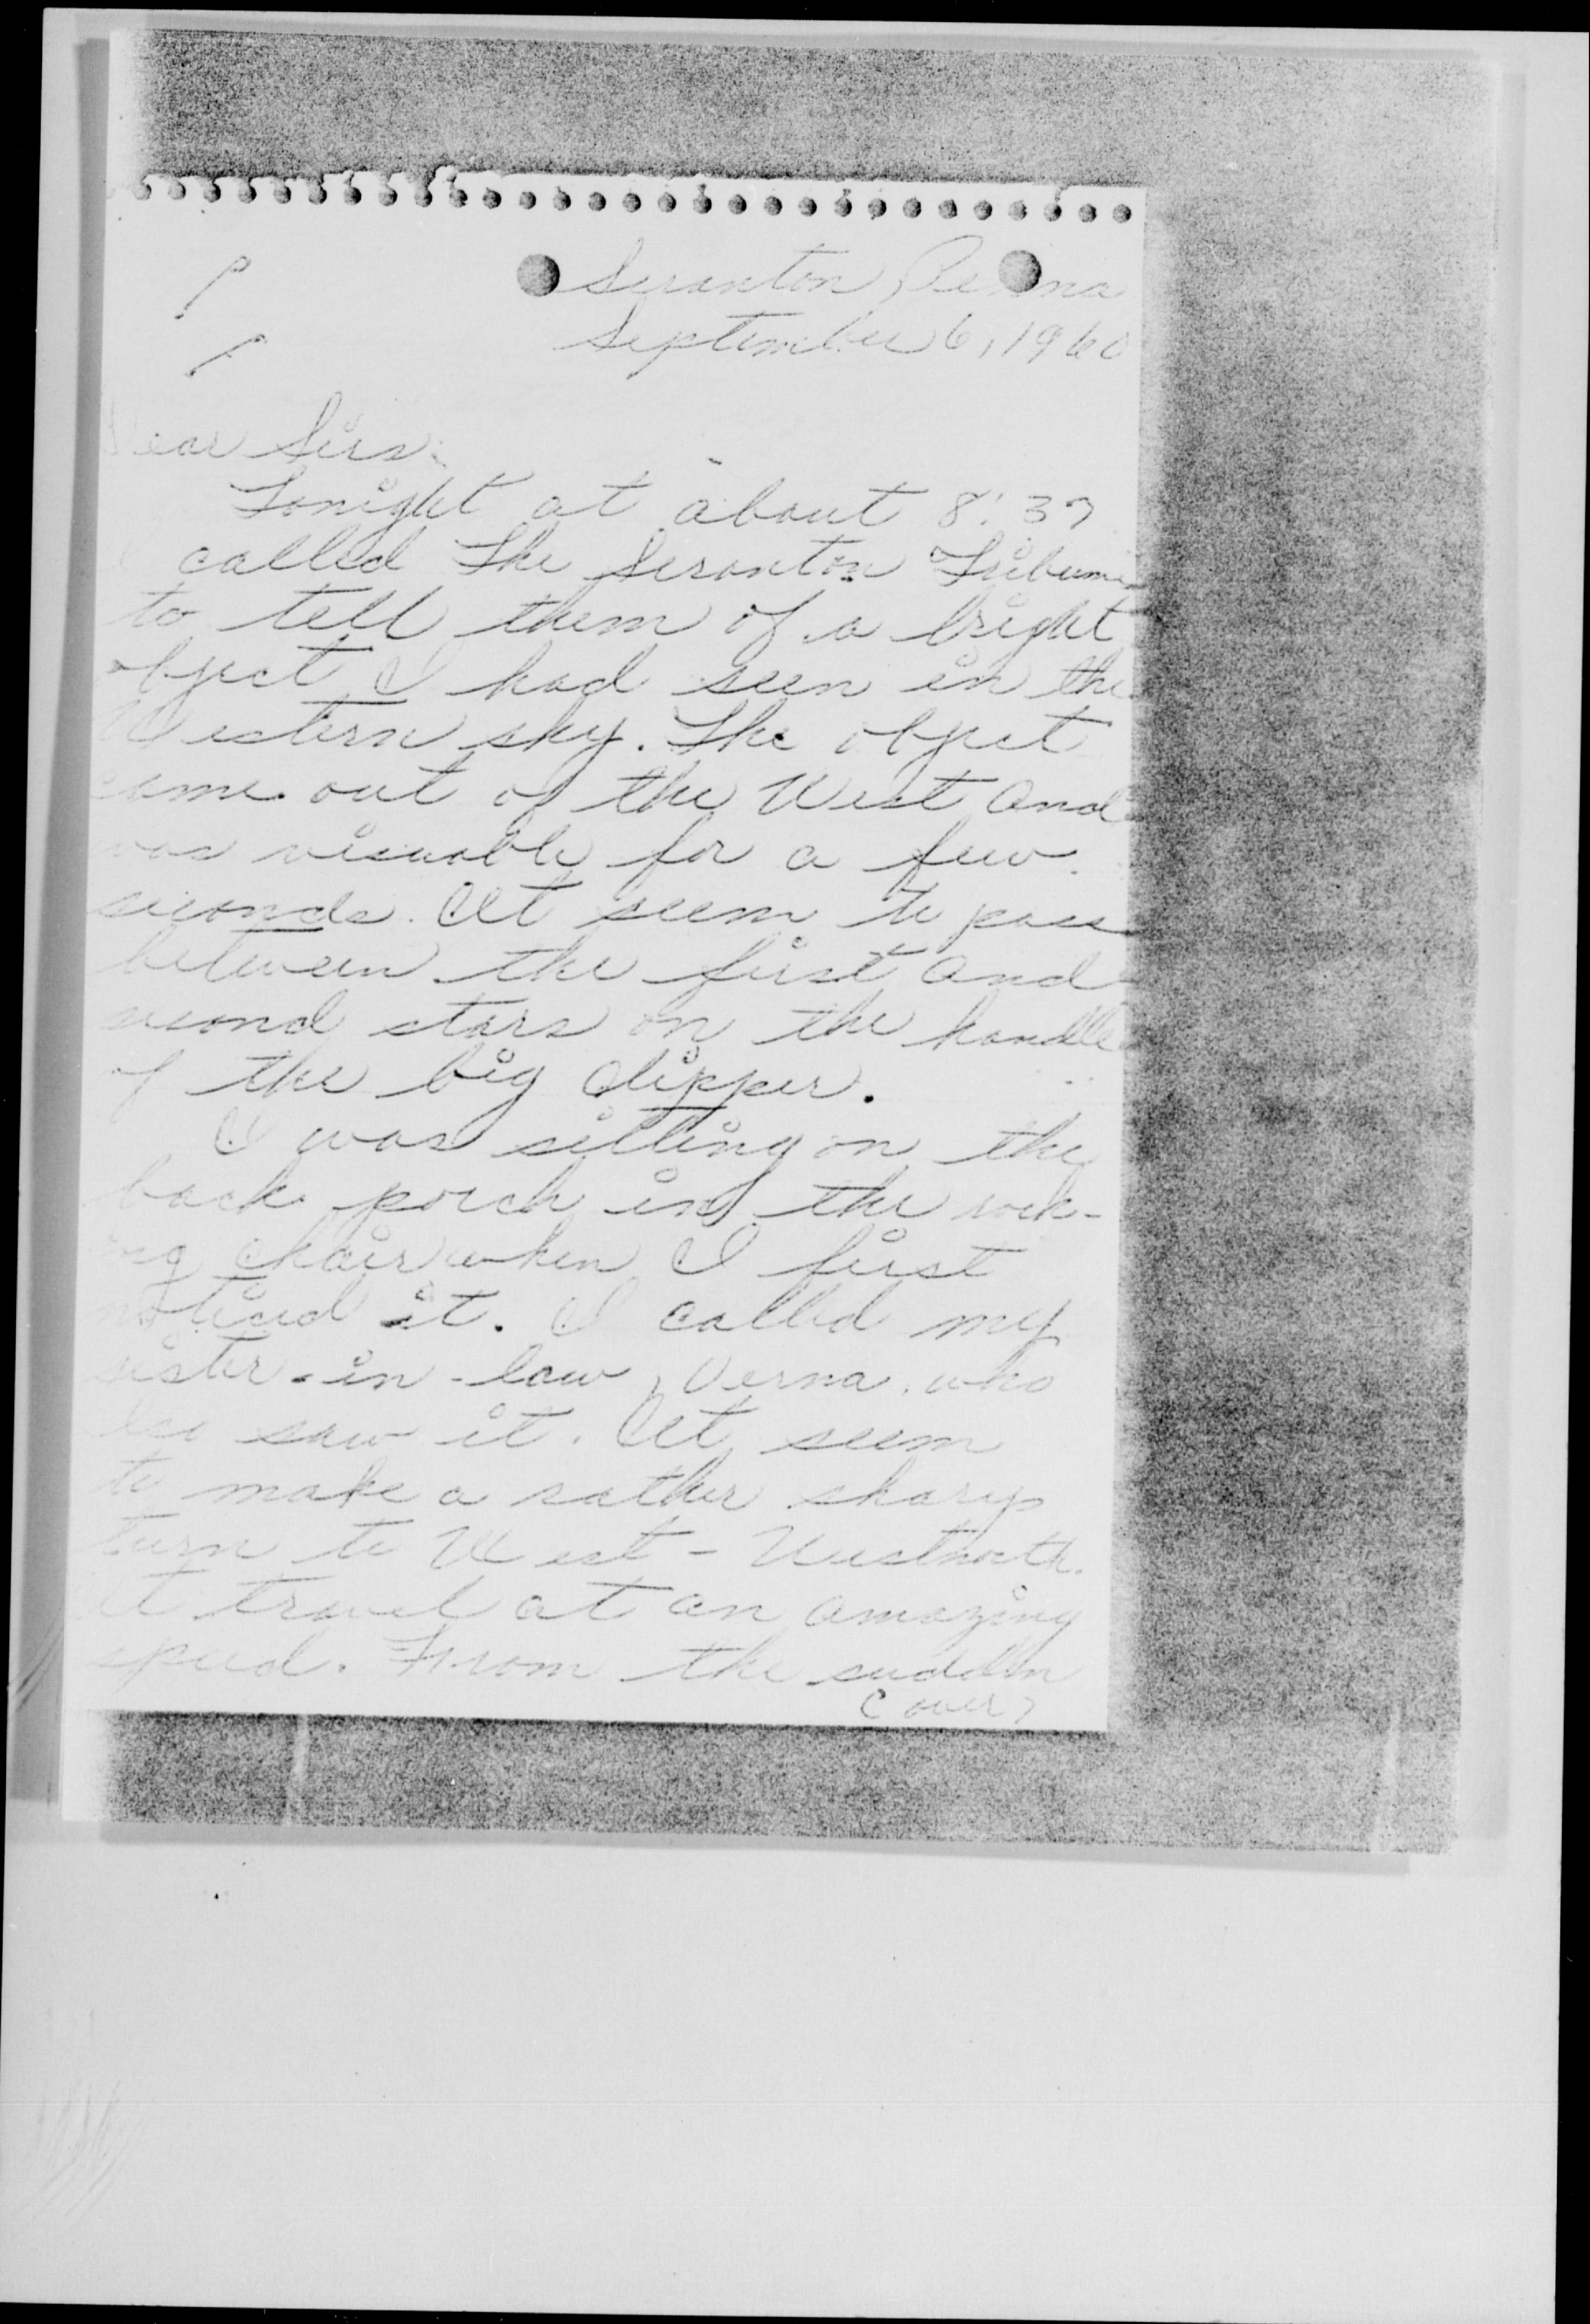 Scranton, Penna
September 6, 1960
Dear Sirs:
Tonight at about 8:37
I called The Scranton Tribune
to tell them of a bright
object I had seen in the
Western sky. The object
came out of the West and
was visuable for a few
seconds. It seem to pass
between the first and
second stars on the handle
of the big dipper.
I was sitting on the
back porch in the rock-
ing chair when I first
noticed it. I called my
sister-in-law, Verna, who
also saw it. It seem
to make a rather sharp
turn to West-Westnorth.
It travel at an amazing
speed. From the sudden
(over)